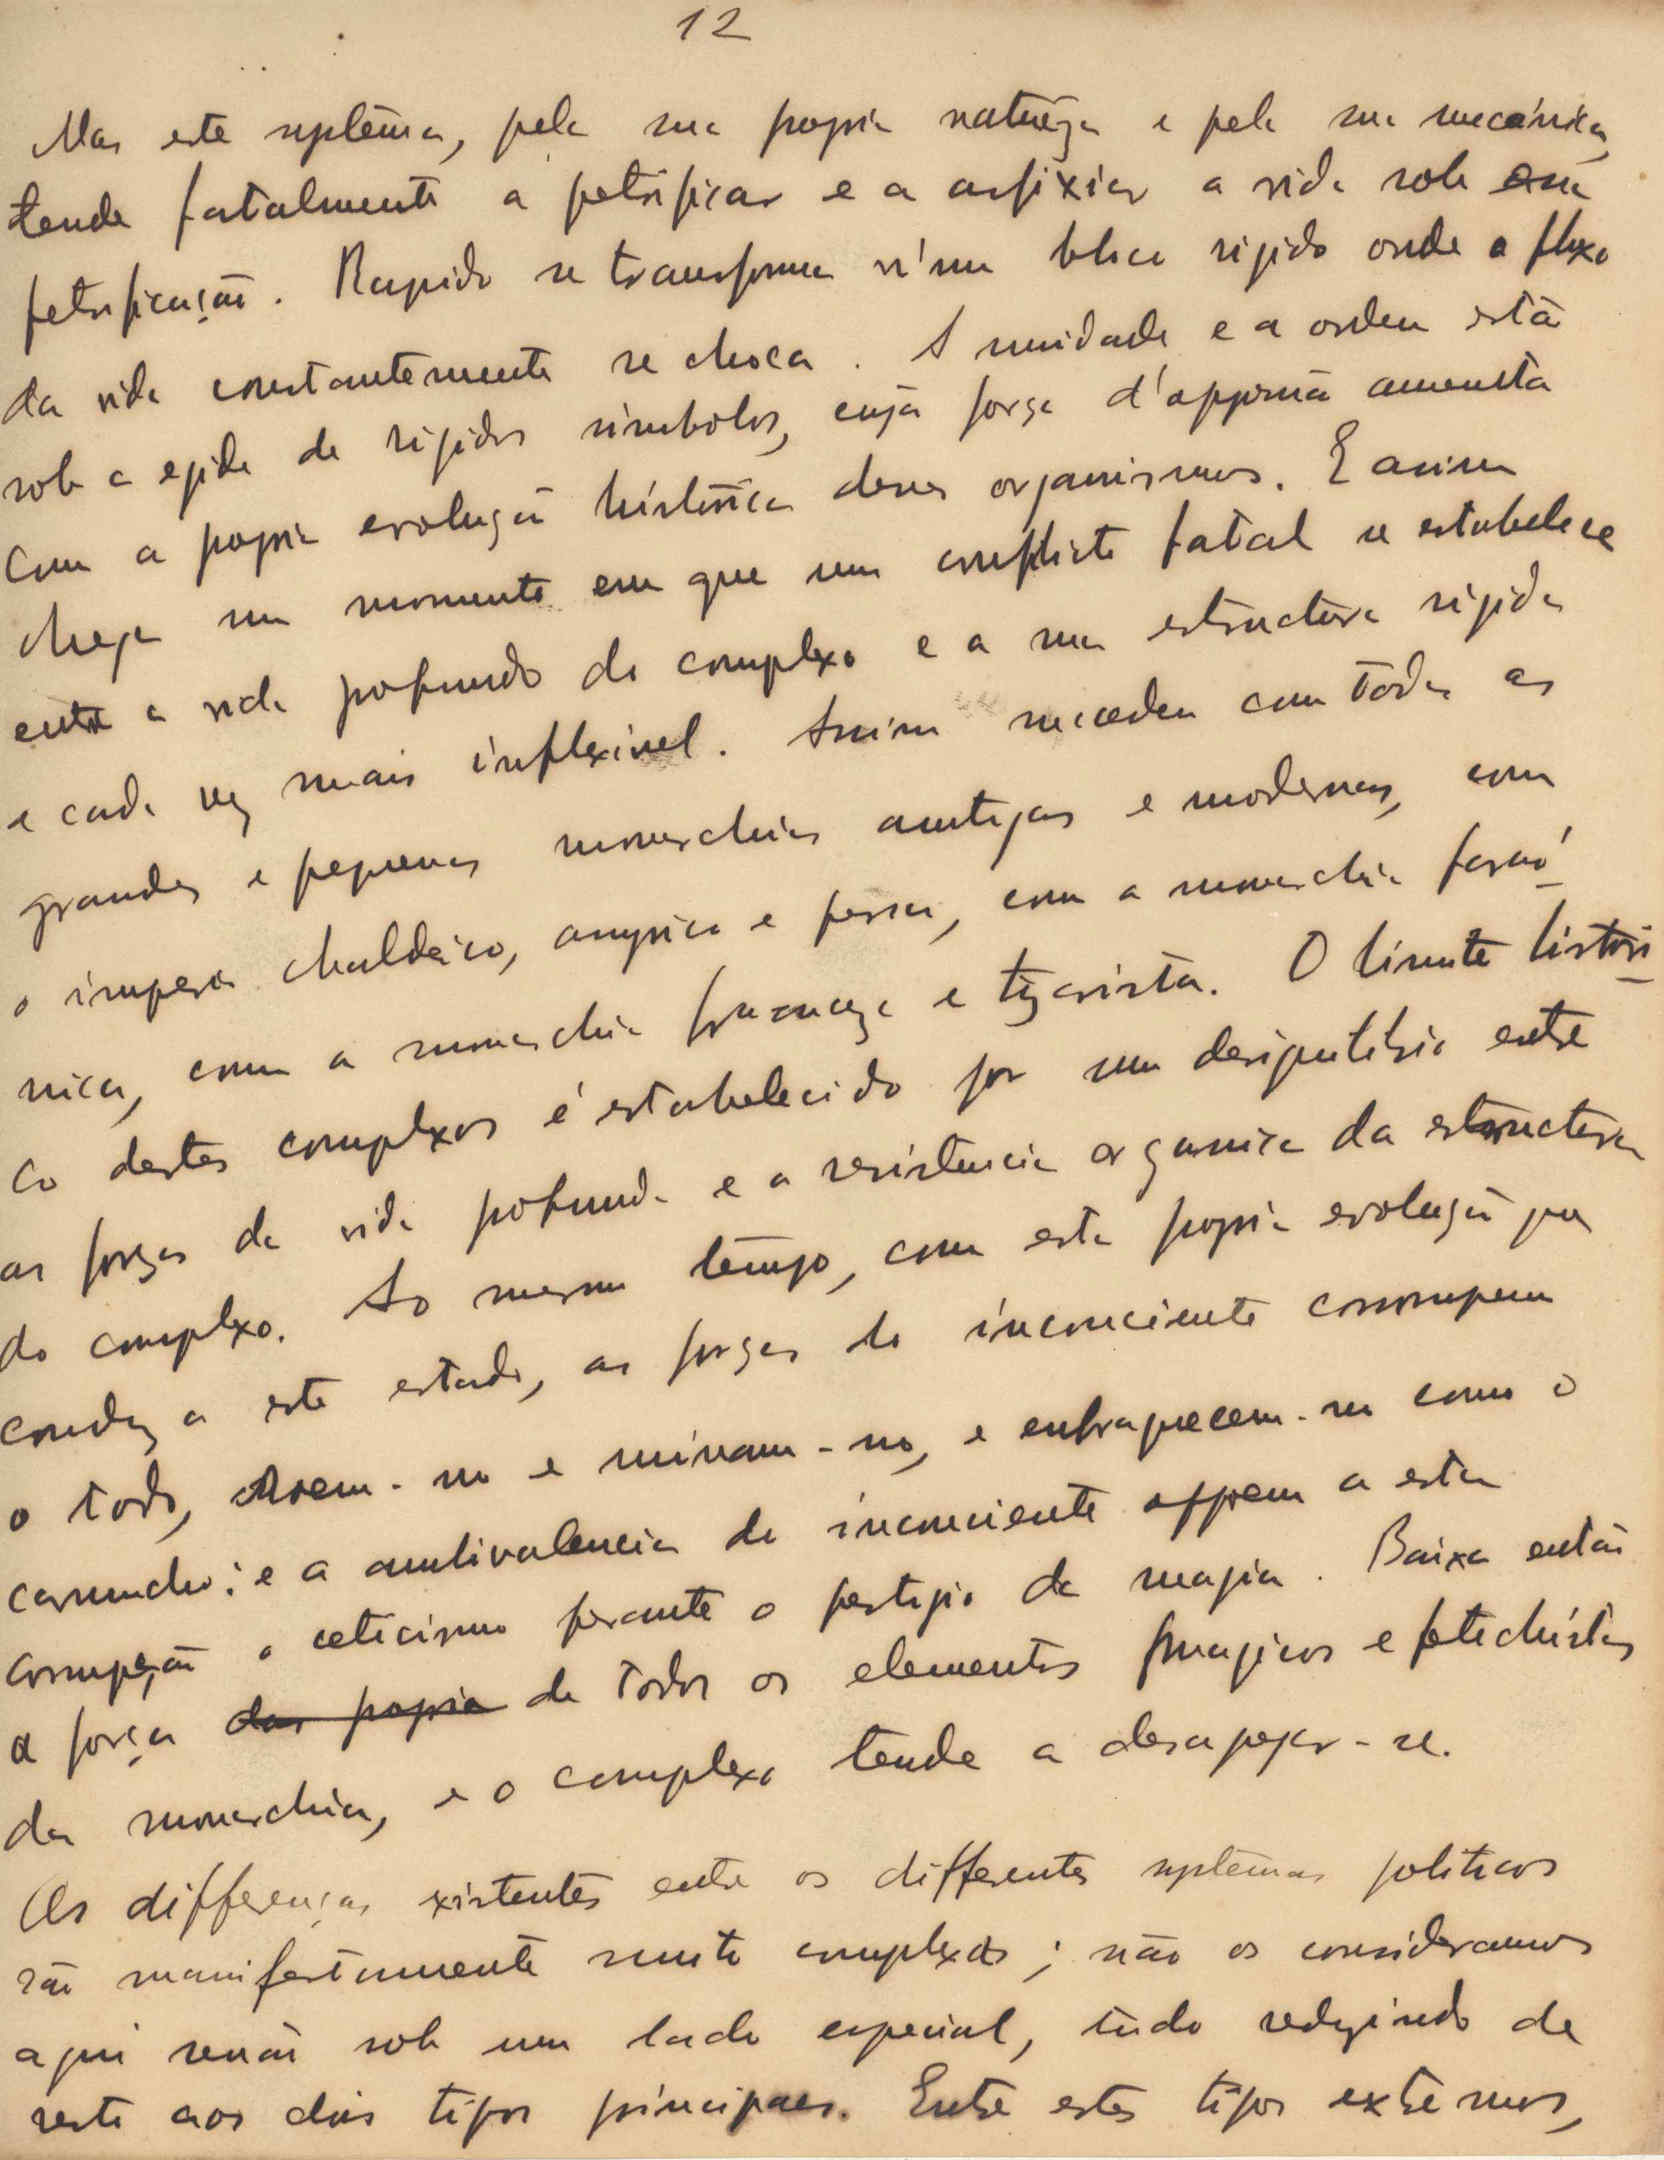 12
Mas este systema, pela sua propria natureza e pela sua mecánica,
tende fatalmente a petrificar e a asfixiar a vida sob essa
petrificação. Rapido se transforma n'um bloco rigido onde o fluxo
da vida constantemente se choca. A unidade e a ordem está
sob a egide de rigidos simbolos, cuja força d'oppressão aumenta
com a propria evolução histórica desses organismos. E assim
chega um momento em que um conflicto fatal se estabelece
entre a vida profunda do complexo e a sua estructura rigida
e cada vez mais inflexivel. Assim succedeu com todas as
grandes e pequenas monarchias antigas e modernas, com
o imperio chaldáico, assyrico e persa, com a monarchia faraó-
nica, com a monarchia franceza e tzarista. O limite histori-
co destes complexos é estabelecido por um desiquilibrio entre
as forças da vida profunda e a resistencia organica da estructura
do complexo. Ao mesmo tempo, com esta propria evolução que
conduz a este estado, as forças do inconsciente corrompem
o todo, roem-no e minam-no, e enfraquecem-no como o
caruncho: e a ambivalencia do inconsciente oppoem a esta
corrupção o ceticismo perante o prestigio da magia. Baixa então
a força das propria de todos os elementos magicos e fetichistas
da monarchia, e o complexo tende a desagregar-se.
As differenças existentes entre os differentes systemas politicos
são manifestamente muito complexas; não os consideramos
aqui senão sob um lado especial, tudo reduzindo de
resto aos dois tipos principaes. Entre estes tipos extremos,